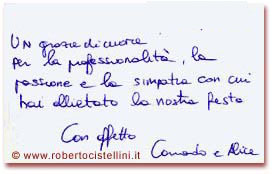 Un grazie di cuore
per la professionalità, la
passione e la simpatia con cui
hai allietato la nostra festa
Con affetto
Corrado e Alice
© www.robertocistellini.it